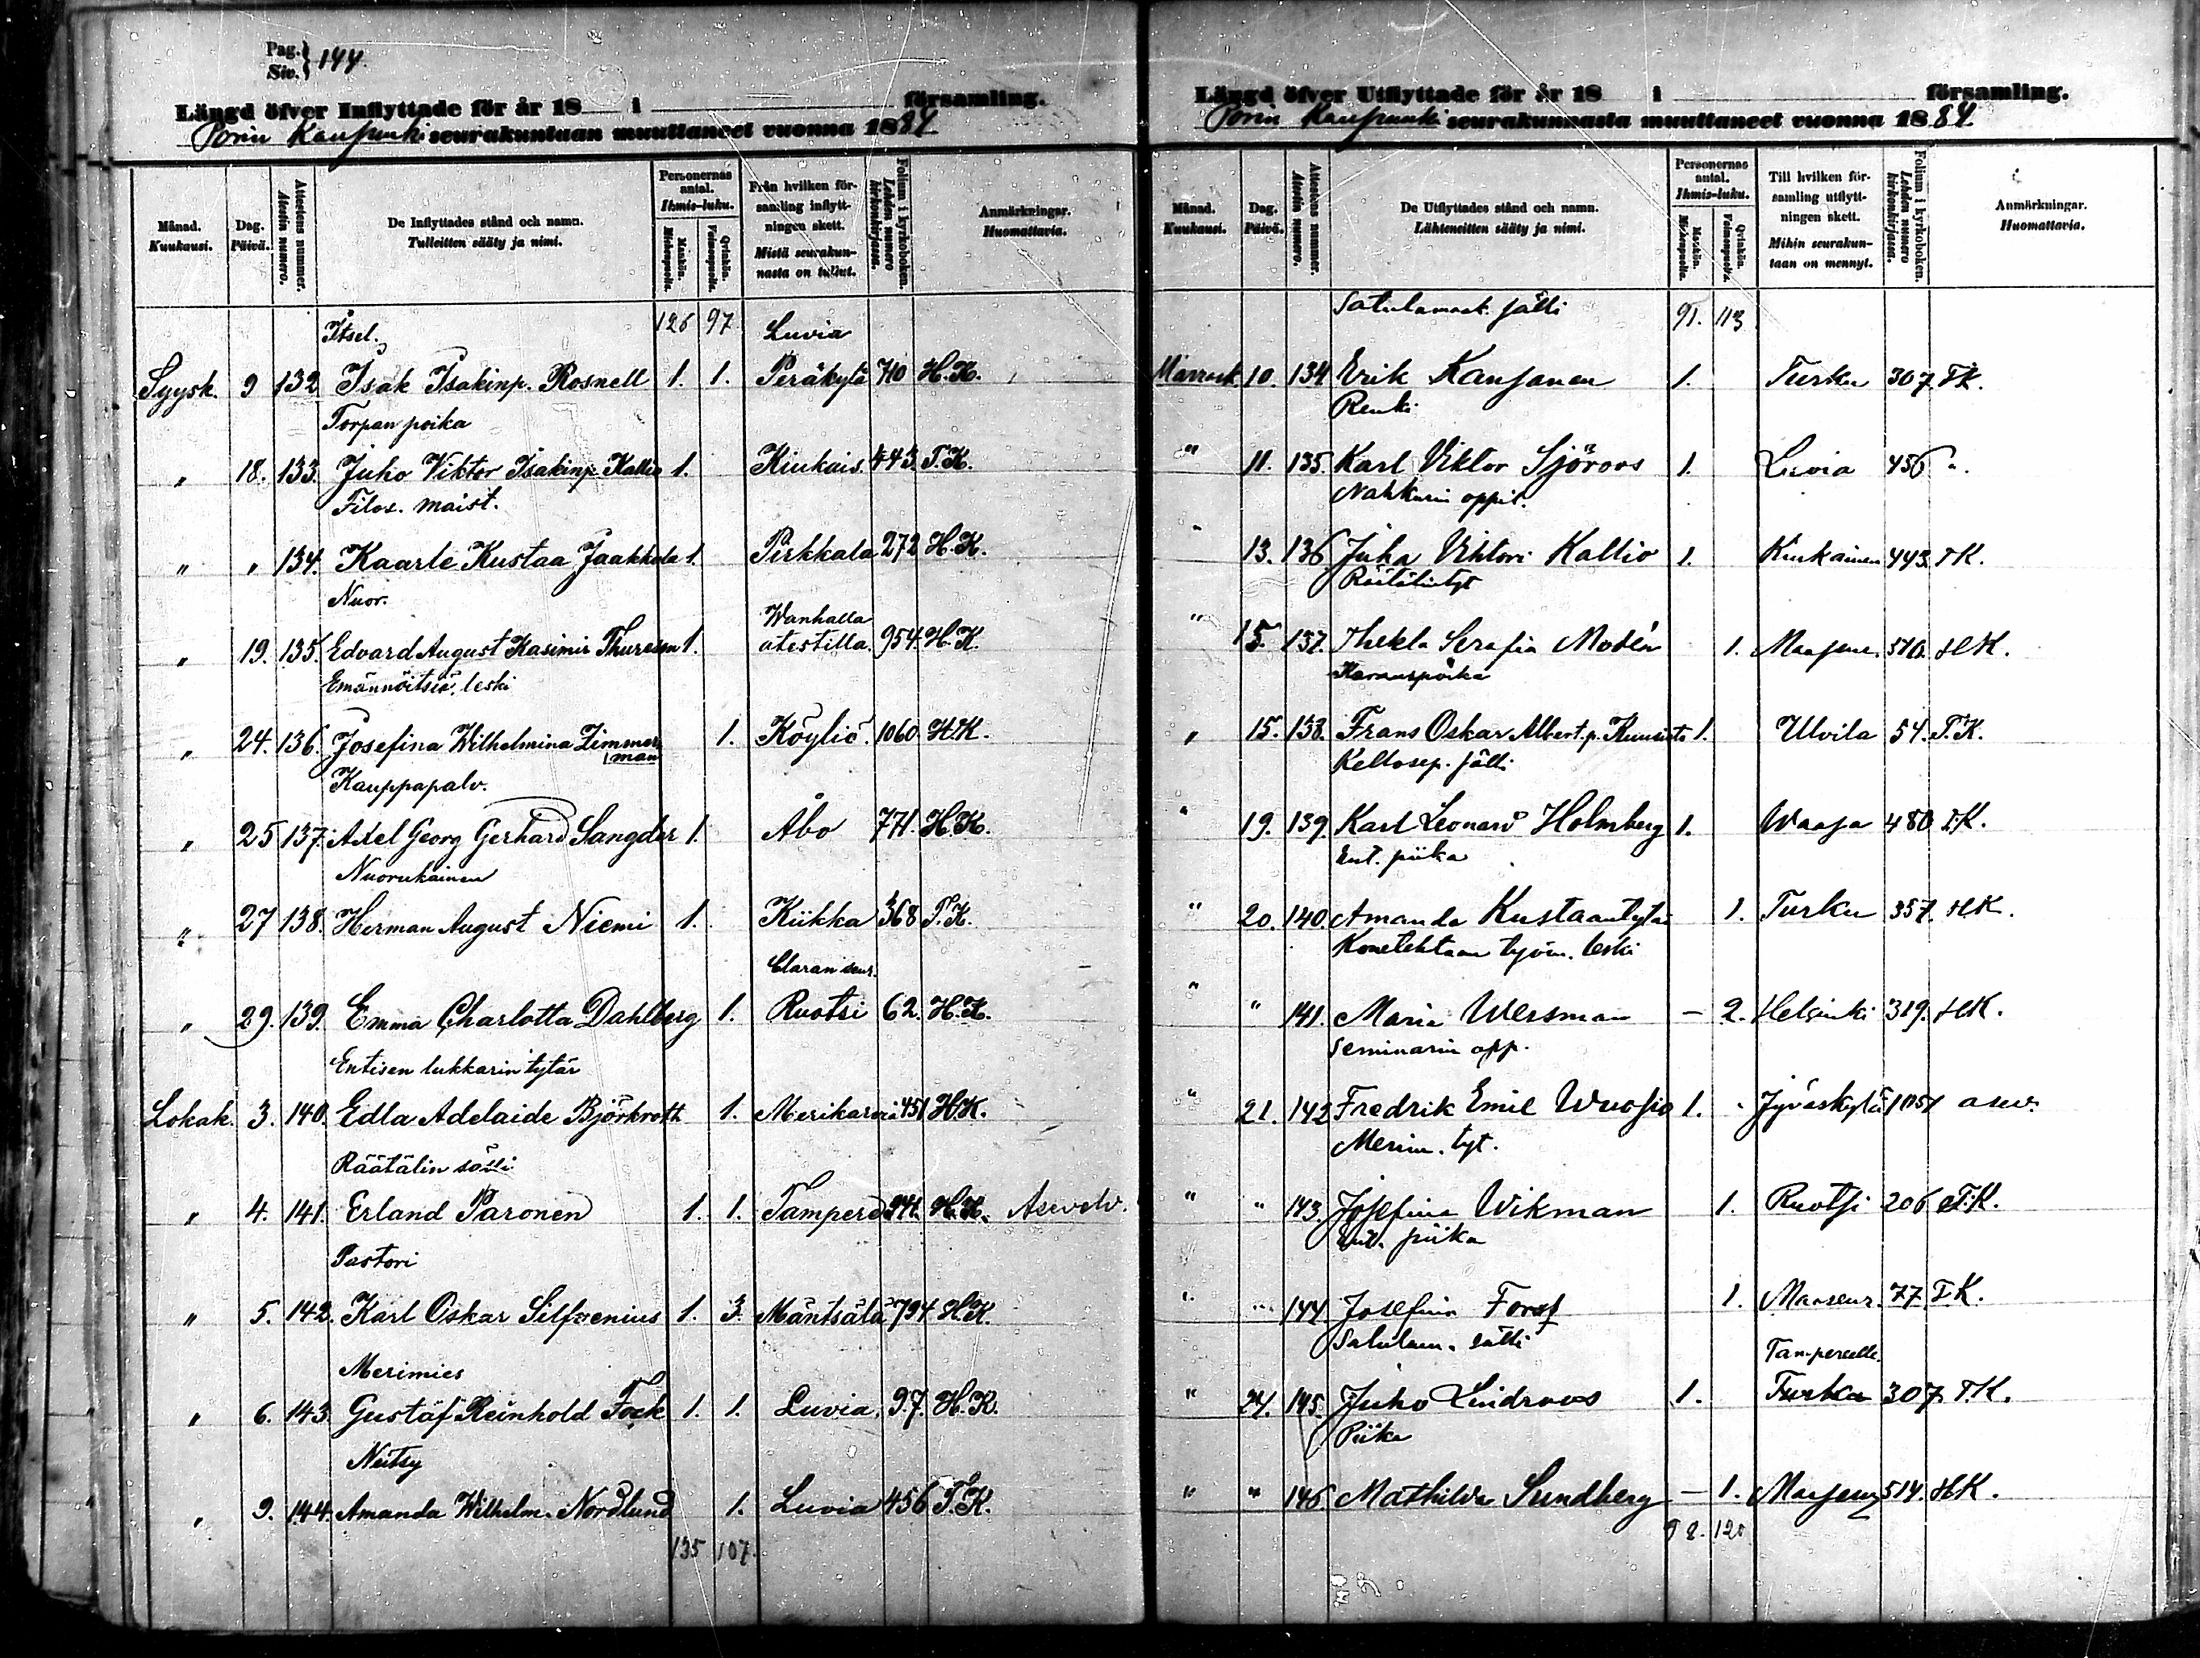 Pag.
Siv. } 144.
Längd öfver Inflyttade för år 18 i församling.
Porin Kaupunki seurakuntaan muuttaneet vuonna 1884
Månad. Kuukausi. Dag. Päivä. Attestens nummer. Atestin numero. De Inflyttades stånd och namn. Tulleitten sääty ja nimi. Personernas antal. Ihmis-luku. Mankön. Miehenpuolia. Qvinkön. Vaimonpuolia. Från hvilken församling inflyttningen skett. Mistä seurakunnasta on tullut. Folium i kyrkoboken. Lehden numero kirkonkirjassa. Anmärkningar. Huomattavia.
Itsel. 126 97 Luvia
Syysk. 9 132 Isak Isakinp. Rosnell 1. 1. Peräkylä 710 H.K.
Torpan poika
„ 18. 133. Juho Viktor Isakinp. Kallio 1. Kiukais. 443. T.K.
Filos. maist.
„ „ 134. Kaarle Kustaa Jaakkola 1. Pirkkala 272 H.K.
Nuor. Wanhalla
„ 19. 135. Edvard August Kasimir Thuresen 1. atestilla. 954. H.K.
Emännöitsiä, leski
„ 24. 136. Josefina Wilhelmina Zimmerman 1. Köyliö. 1060. H.K.
Kauppapalv.
„ 25 137. Axel Georg Gerhard Sangder 1. Åbo 771. H.K.
Nuorukainen
„ 27 138. Herman August Niemi 1. Kiikka 368 T.K.
Claran seur.
„ 29. 139. Emma Charlotta Dahlberg 1. Ruotsi 62. H.K.
Entisen lukkarin tytär
Lokak. 3. 140. Edla Adelaide Björkroth 1. Merikarvia 451 H.K.
Räätälin sälli
„ 4. 141. Erland Paronen 1. 1. Tampere 941. H.K. Asevelv.
Pastori
„ 5. 142. Karl Oskar Silfvenius 1. 3. Mäntsälä 794 H.K.
Merimies
„ 6. 143. Gustaf Reinhold Fock 1. 1. Luvia. 97. H.K.
Neitsy
„ 9. 144. Amanda Wilhelm. Nordlund 1. Luvia 456 T.K.
135 107.
Längd öfver Utflyttade för år 18 i församling.
Porin Kaupunki seurakunnasta muuttaneet vuonna 1884.
Månad. Kuukausi. Dag. Päivä. Attestens nummer. Atestin numero. De Utflyttades stånd och namn. Lähteneitten sääty ja nimi. Personernas antal. Ihmis-luku. Mankön. Miehenpuolia. Qvinkön. Vaimonpuolia. Till hvilken församling utflyttningen skett. Mihin seurakuntaan on mennyt. Folium i kyrkoboken. Lehden numero kirkonkirjassa. Anmärkningar. Huomattavia.
Satulamaak. sälli 91. 113
Marrask 10. 134 Erik Kaujanen 1. Turku 307. T.K.
Renki
„ 11. 135. Karl Viktor Sjöroos 1. Luvia 456 „.
Nahkurin oppil.
„ 13. 136. Juha Vihtori Kallio 1. Kiukainen 443. T.K.
Räätälintyt
„ 15. 137. Thekla Serafia Modén 1. Maaseur. 510. H.K.
„ 15. 138. Frans Oskar Albert.p. Kuusisto 1. Ulvila 54. T.K.
Keltosep. sälli
„ 19. 139. Karl Leonard Holmberg 1. Waasa 480 T.K.
Ent. piika
„ 20. 140. Amanda Kustaantytär 1. Turku 357. H.K.
Konetehtaan työm. leski
„ „ 141. Maria Wersman – 2. Helsinki 319. H.K.
Seminarin opp.
„ 21. 142 Fredrik Emil Wuosio 1. Jyväskylä 1051 asev.
Merim. tyt.
„ „ 143. Josefina Wikman 1. Ruotsi 206 T.K.
Ent. piika
„ „ 144. Josefina Forss 1. Maaseur. 77. T.K.
Satulam. sälli Tampereelle.
„ 24. 145. Juho Lindroos 1. Turku 307. T.K.
Piika
„ „ 146. Mathilda Sundberg – 1. Maaseur 514. H.K.
98. 120